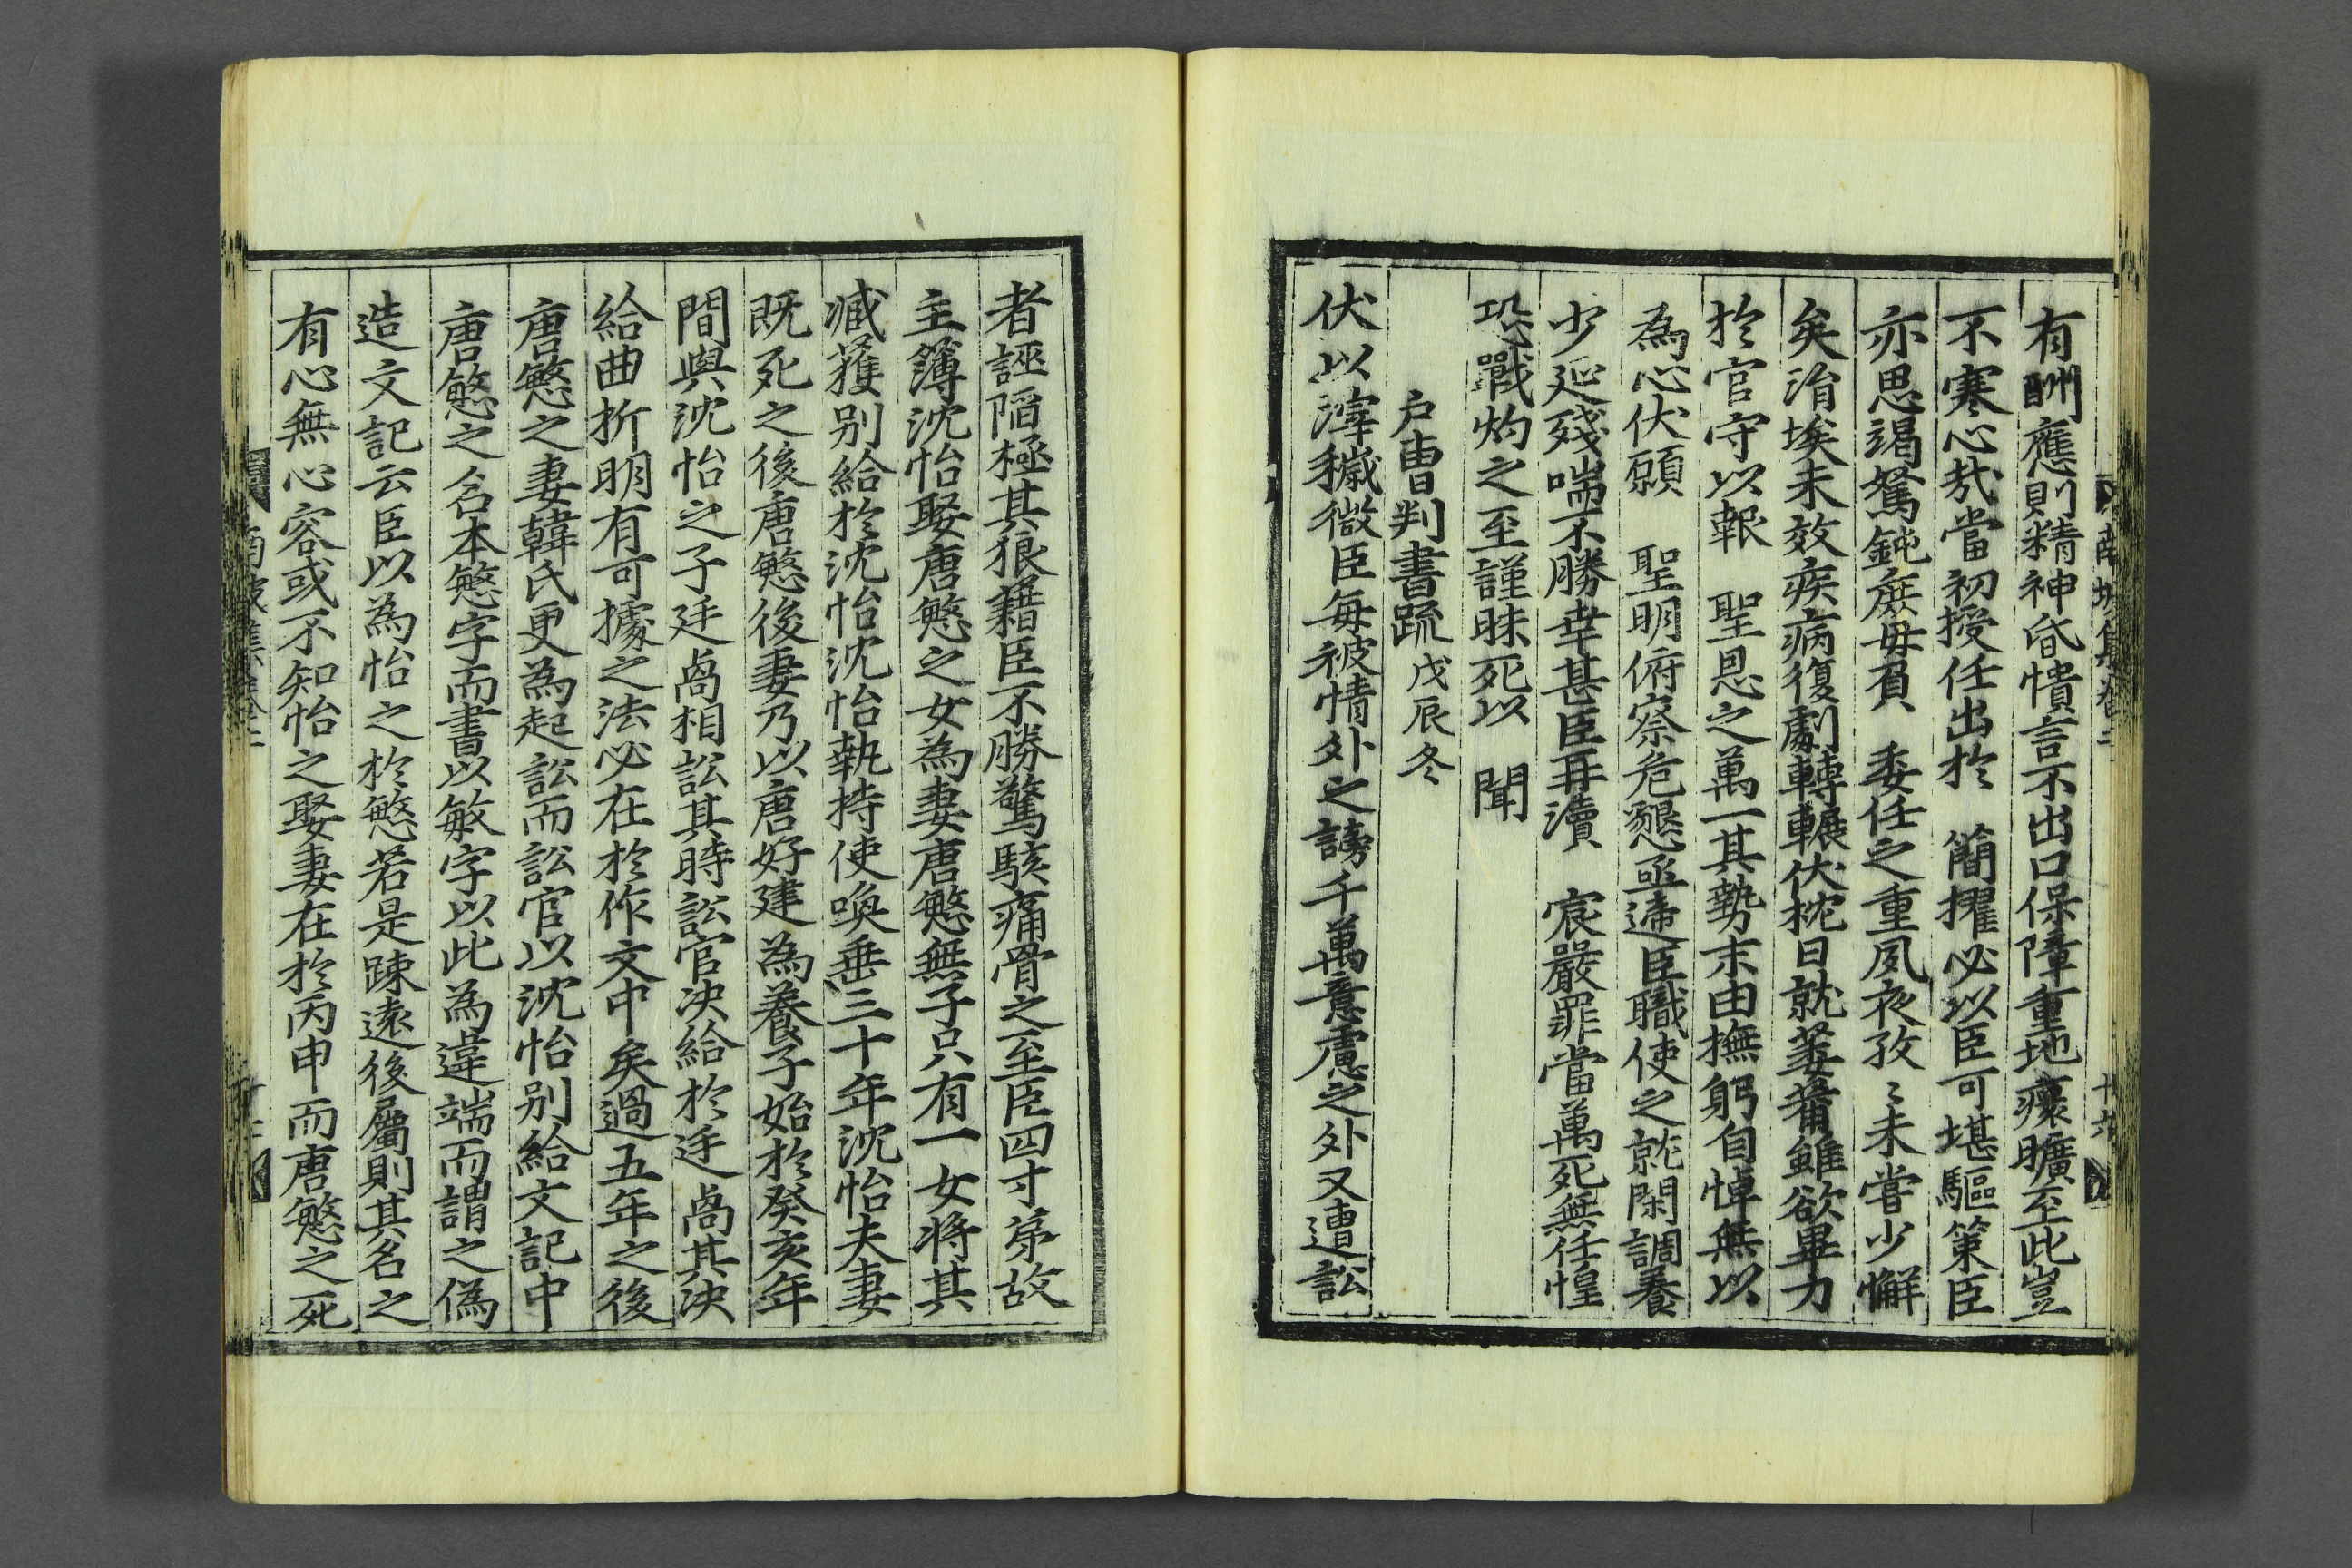 有酬應則精神昏憒言不出口保障重地癏曠至此豈
不寒心㢤當初授任出於 簡擢必以臣可堪驅策臣
亦思竭駑鈍庶毋負 委任之重夙夜孜〻未嘗少懈
矣涓埃未效疾病復劇轉輾伏枕日就萎薾雖欲畢力
於官守以報 聖恩之萬一其勢末由撫躬自悼無以
為心伏願 聖明俯察危懇亟遞臣職使之就閑調養
少延殘喘不勝幸甚臣再瀆 宸嚴罪當萬死無任惶
恐戰灼之至謹昧死以 聞
戶曹判書疏 戊辰冬
伏以滓穢微臣每被情外之謗千萬意慮之外又遭訟
者誣陷極其狼藉臣不勝驚駭痛骨之至臣四寸弟故
主簿沈怡娶唐慜之女為妻唐慜無子只有一女將其
臧獲別給於沈怡沈怡執持使喚垂三十年沈怡夫妻
既死之後唐慜後妻乃以唐好建為養子始於癸亥年
間與沈怡之子廷卨相訟其時訟官决給於廷卨其决
給曲折明有可據之法必在於作文中矣過五年之後
唐慜之妻韓氏更為起訟而訟官以沈怡別給文記中
唐慜之名本慜字而書以敏字以此為違端而謂之偽
造文記云臣以為怡之於慜若是踈遠後屬則其名之
有心無心容或不知怡之娶妻在於丙申而唐慜之死
南坡集卷二
十六